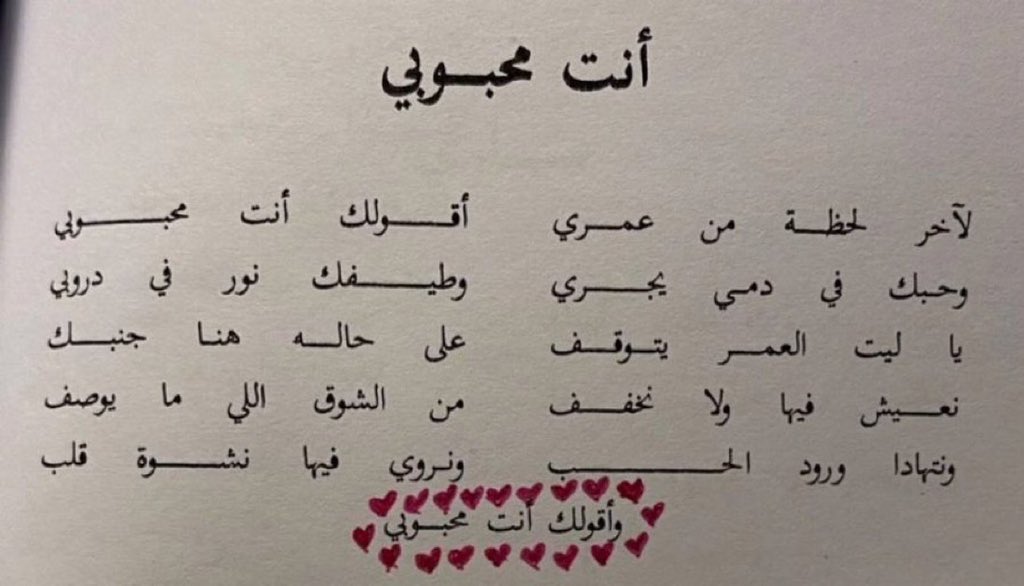 أنت محبوبي
لآخر لحظة من عمري أقولك أنت محبوبي
وحبك في دمي يجري وطيفك نور في دروبي
يا ليت العمر يتوقف على حاله هنا جنبك
نعيش فيها ولا نخفف من الشوق اللي ما يوصف
ونتهادا ورود الحب ونروي فيها نشوة قلب
وأقولك أنت محبوبي